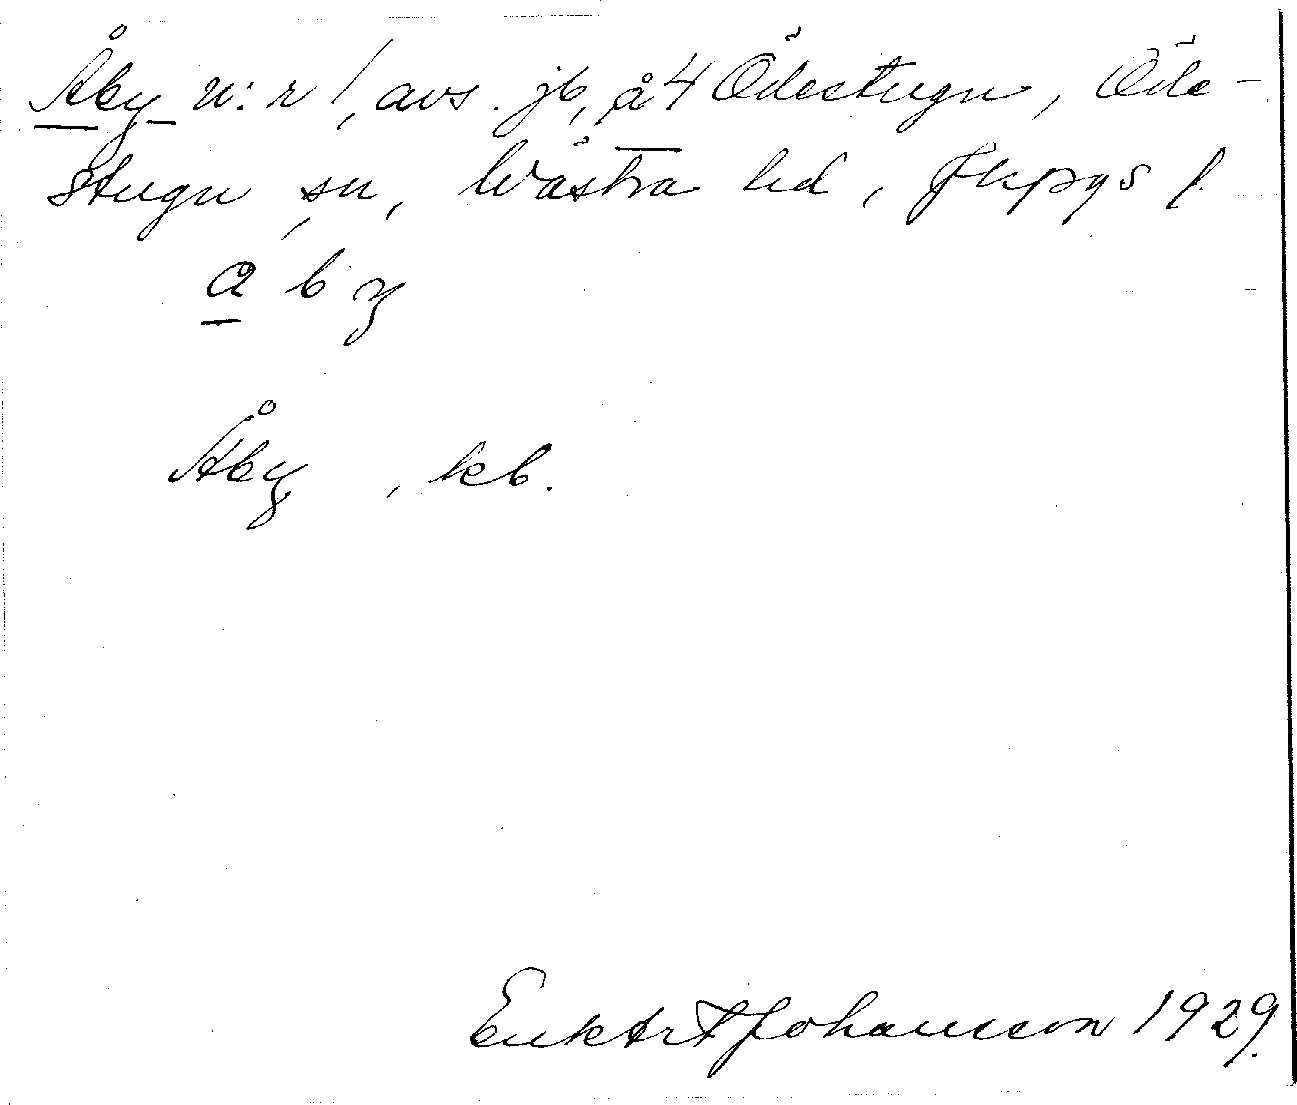 Åby n:r 1, avs. jb, å 4 Ödestugu, Öde-
stugu sn, Västra hd, Jkpgs l.
å b y
Åby, kb.
Johansson 1929.